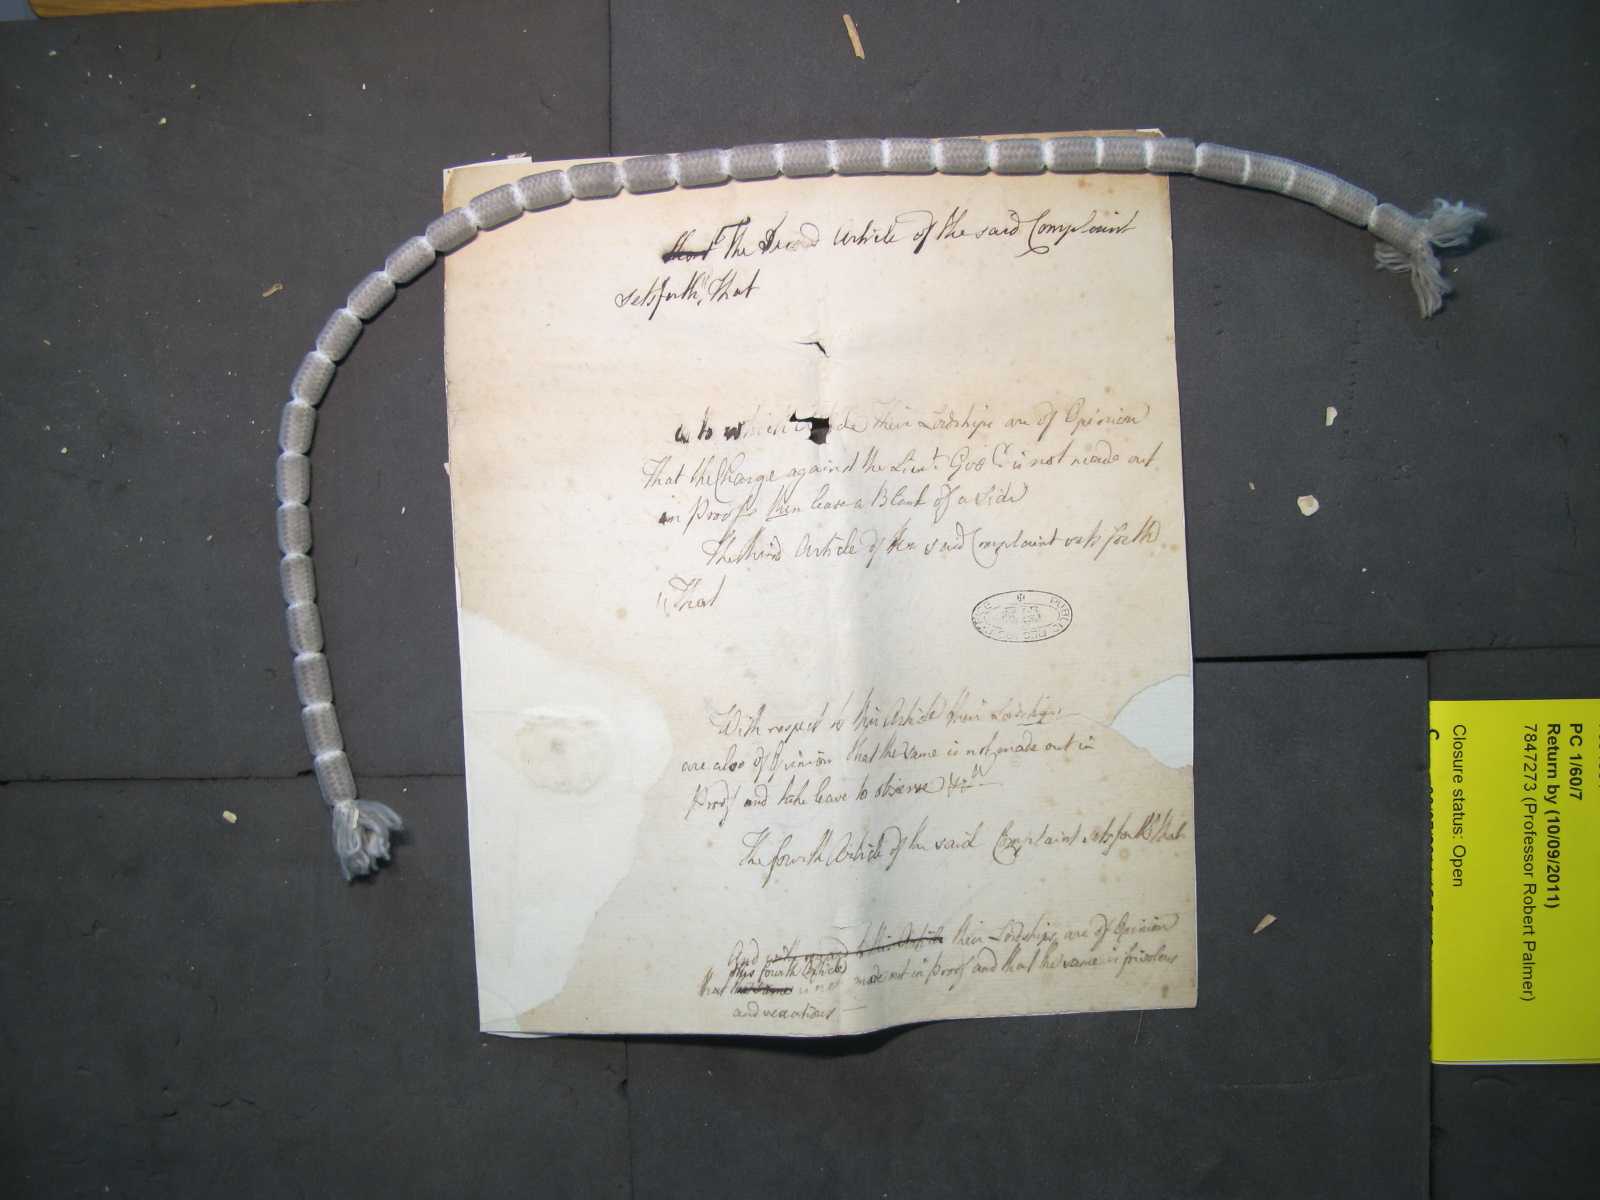 that The Second Article of the said Complaint
setsforth, "That
as to which Article Their Lordships are of Opinion
That the Charge against the Lieut. Govr. is not made out
in Proof & then leave a Blank of a Side
The third Article of the said Complaint sets forth
"That
With respect to this Article their Lordships
are also of Opinion that the same is not made out in
Proof and take leave to observe
The fourth Article of the said Complaint sets forth that
And with regard to this Article their Lordships are of Opinion
this fourth Article
that the same is not made out in proof and that the same is frivolous
and vexatious
PUBLIC RECORD OFFICE
PC 1/60/7
Return by (10/09/2011)
7847273 (Professor Robert Palmer)
Closure status: Open